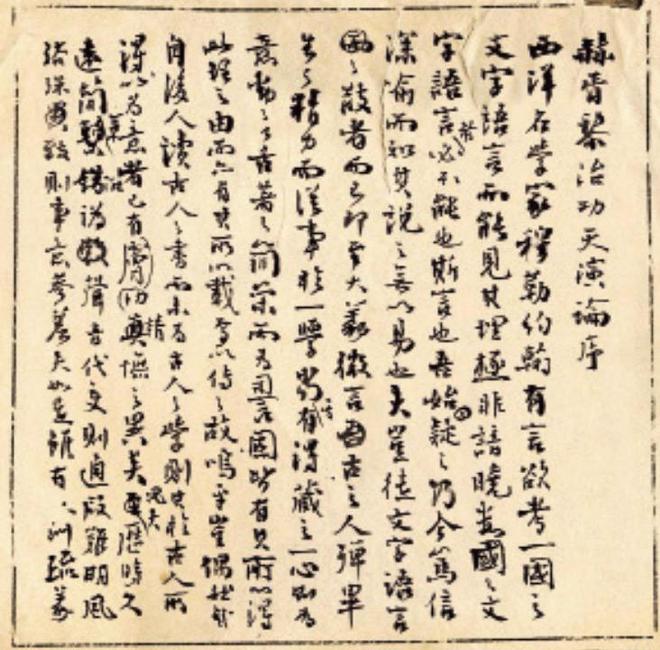 赫胥黎治功天演論序
西洋名學家穆勒約翰有言欲考一國之
文字語言而能見其理極非諳曉數國之文
字語言者不能也斯言也吾始疑之乃今篤信
深喻而知其說之無以易也夫豈徒文字語言
之散者而已即至大義微言古之人殫畢
生之精力而從事於一學當其有得藏之一心則為
意動之口舌著之簡策而為言固皆有其所以得
此理之由而亦有其所以載焉以傳之故嗚呼豈偶然哉
自後人讀古人之書而未為古人之學則其於古人所
得以為意者已有膚切精憮之異矣況又歷時久
遠簡錯譌聲音代變則通叚難明風
俗殊則事意參差夫如是雖有訓疏義